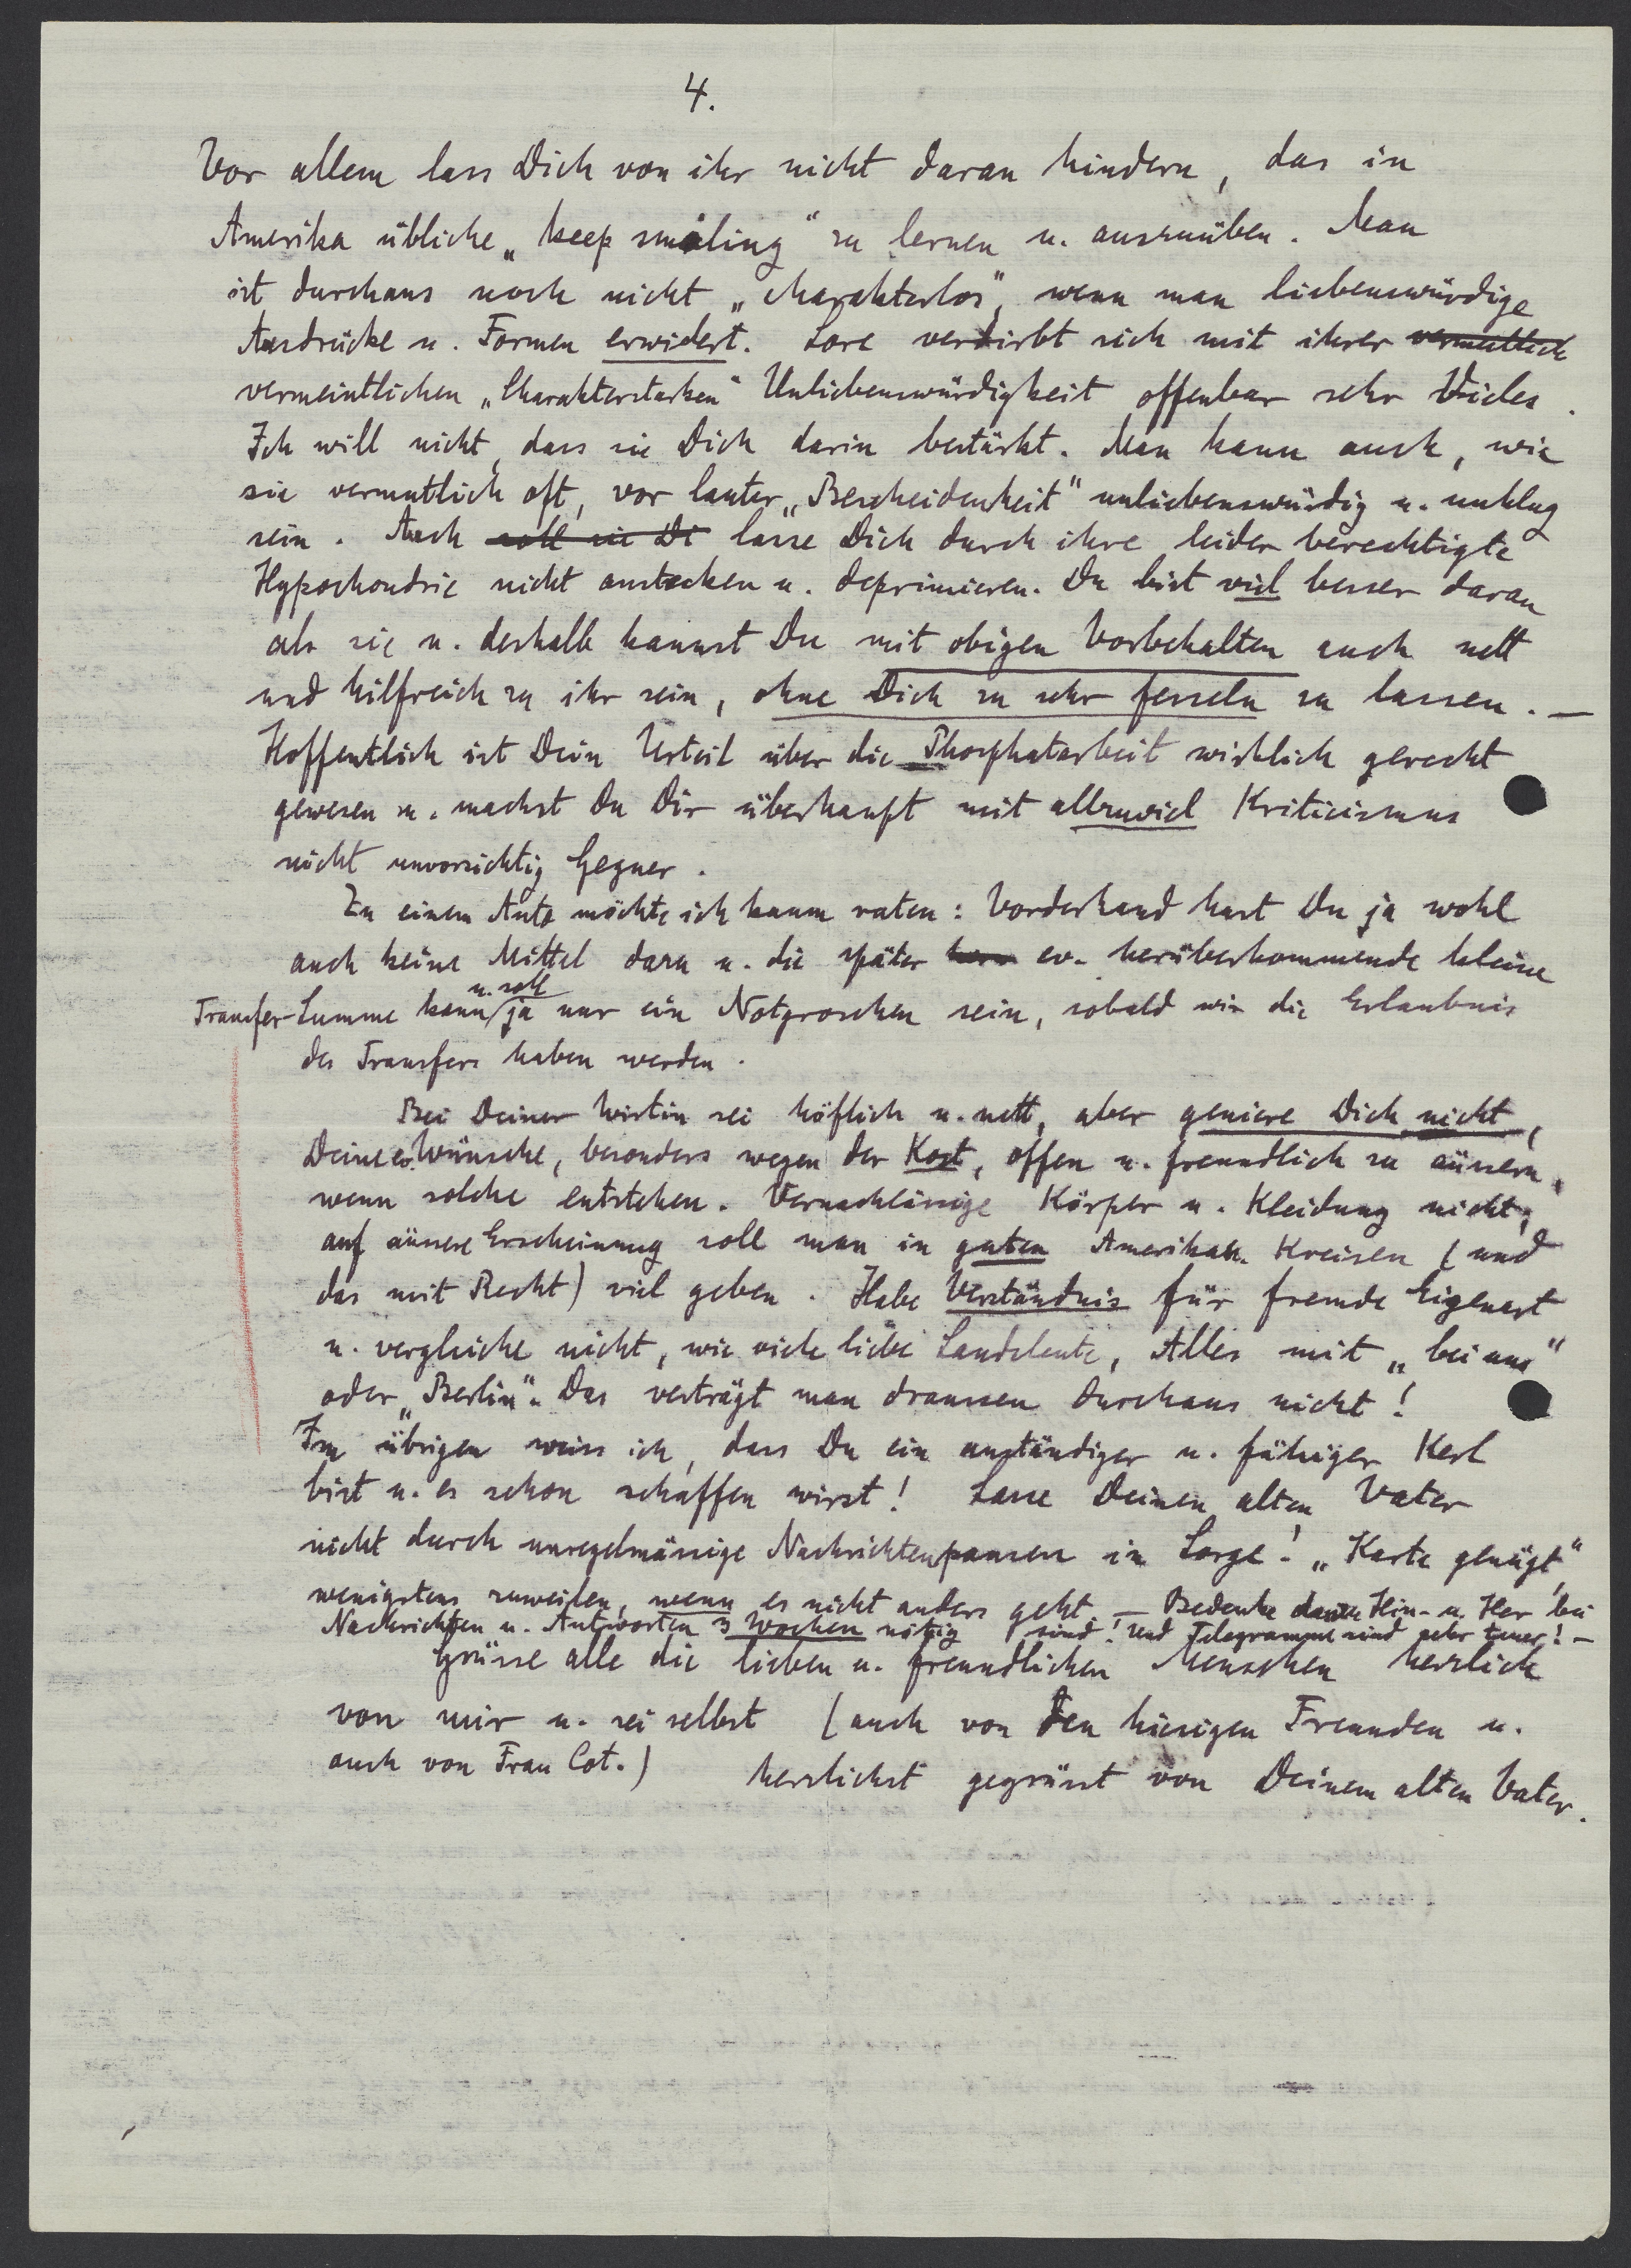 4.
Vor allem lass Dich von ihr nicht daran hindern, das in
Amerika übliche „keep smiling" zu lernen u. auszuüben. Man
ist durchaus noch nicht „charakterlos", wenn man liebenswürdige
Ausdrücke u. Formen erwidert. Lore verdirbt sich mit ihrer vermutlich
vermeintlichen „Charakterstarken" Unliebenswürdigkeit offenbar sehr Vieles.
Ich will nicht, dass sie Dich darin bestärkt. Man kann auch, wie
sie vermutlich oft, vor lauter „Bescheidenheit" unliebenswürdig u. unklug
sein. Auch soll sie Di lasse Dich durch ihre leider berechtigte
Hypochondrie nicht anstecken u. deprimieren. Du bist viel besser daran
als sie u. deshalb kannst Du mit obigen Vorbehalten auch nett
und hilfreich zu ihr sein, ohne Dich zu sehr fesseln zu lassen. —
Hoffentlich ist Dein Urteil über die Phosphatarbeit wirklich gerecht
gewesen u. machst Du Dir überhaupt mit allzuviel Kriticismus
nicht unvorsichtig Gegner.
Zu einem Auto möchte ich kaum raten: Vorderhand hast Du ja wohl
auch keine Mittel dazu u. die später ev. herüberkommende kleine
Transfer-Summe kann u. soll ja nur ein Notgroschen sein, sobald wir die Erlaubnis
des Transfers haben werden.
Bei Deiner Wirtin sei höflich u. nett, aber geniere Dich nicht,
Deine Wünsche, besonders wegen der Kost, offen u. freundlich zu äussern,
wenn solche entstehen. Vernachlässige Körper u. Kleidung nicht;
auf äussere Erscheinung soll man in guten Amerikan. Kreisen (und
das mit Recht) viel geben. Habe Verständnis für fremde Eigenart
u. vergleiche nicht, wie viele liebe Landsleute, Alles mit „bei uns"
oder „Berlin". Das verträgt man draussen durchaus nicht!
Im übrigen weiss ich, dass Du ein anständiger u. fähiger Kerl
bist u. es schon schaffen wirst! Lasse Deinen alten Vater
nicht durch unregelmässige Nachrichtenpausen in Sorge! „Karte genügt"
wenigstens zuweilen, wenn es nicht anders geht. — Bedenke dass Hin- u. Her bei
Nachrichten u. Antworten 3 Wochen nötig sind! Und Telegramme sind sehr teuer! —
Grüsse alle die lieben u. freundlichen Menschen herzlich
von mir u. sei selbst (auch von den hiesigen Freunden u.
auch von Frau Cot.) herzlichst gegrüsst von Deinem alten Vater.